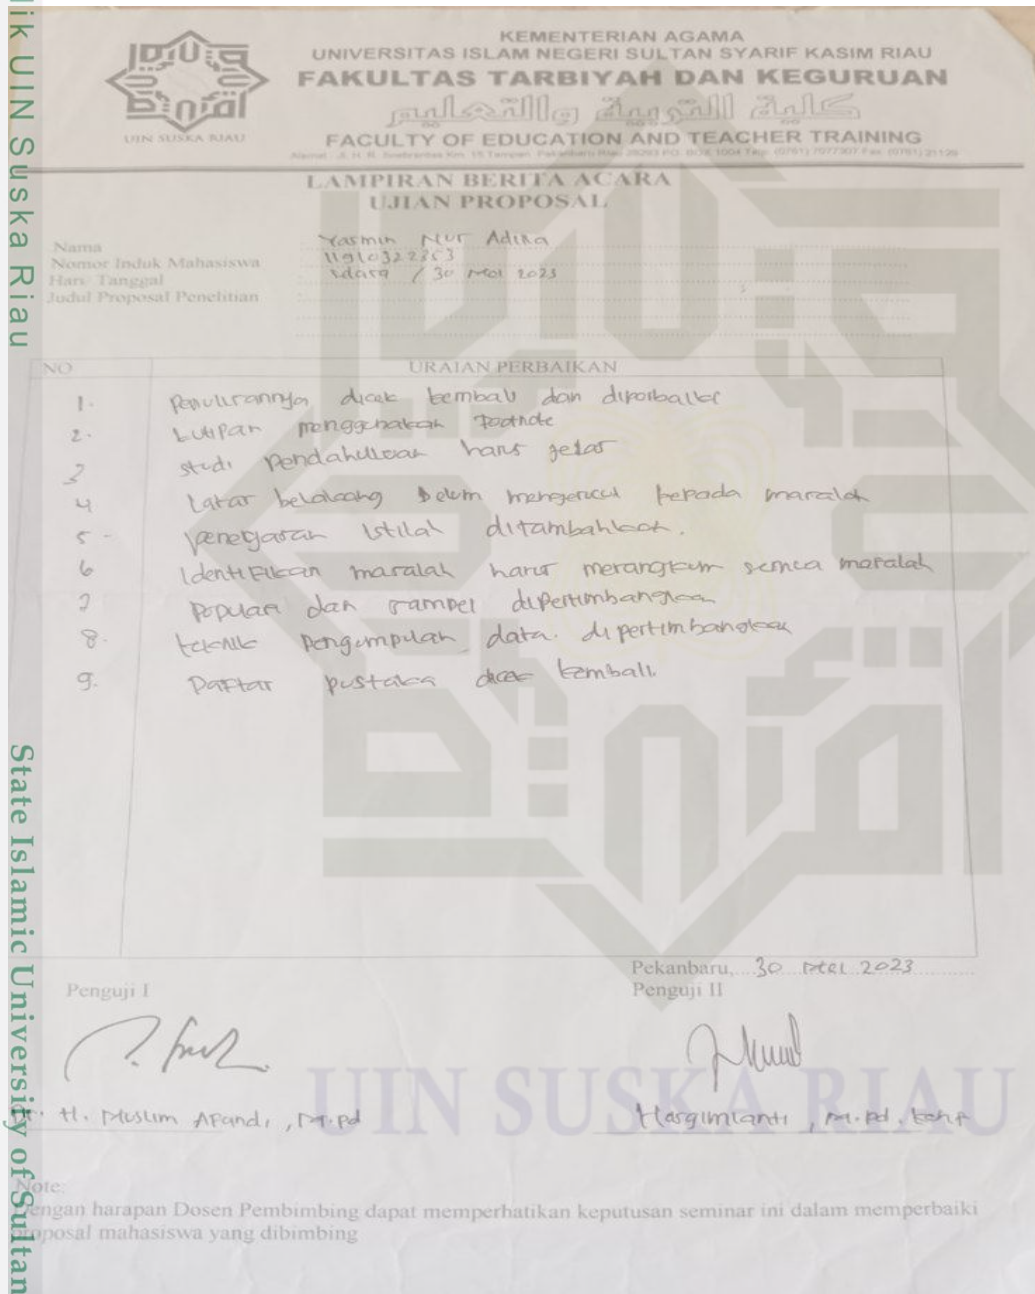 lik UIN Suska Riau
State Islamic University of Sultan
UIN SUSKA RIAU
KEMENTERIAN AGAMA
UNIVERSITAS ISLAM NEGERI SULTAN SYARIF KASIM RIAU
FAKULTAS TARBIYAH DAN KEGURUAN
كلية التربية والتعليم
FACULTY OF EDUCATION AND TEACHER TRAINING
Alamat : Jl. H. R. Soebrantas Km. 15 Tampan, Pekanbaru Riau 28293 PO. BOX 1004 Telp. (0761) 7077307 Fax. (0761) 21129
LAMPIRAN BERITA ACARA
UJIAN PROPOSAL
Nama Yasmin Nur Adina
Nomor Induk Mahasiswa 11910322353
Hari/ Tanggal / 30 Mei 2023
Judul Proposal Penelitian
NO URAIAN PERBAIKAN
1. Penulisannya dicek kembali dan diperbaiki
2. kutipan menggunakan Footnote
3 studi Pendahuluan harus jelas
4 Latar belakang belum mengerucut kepada masalah
5 - penegasan Istilah ditambahkan.
6 Identifikasi masalah harus merangkum semua masalah
7 Populasi dan sampel dipertimbangkan
8. teknik pengumpulan data dipertimbangkan
9. Daftar pustaka dicek kembali.
Pekanbaru, 30 Mei 2023
Penguji I Penguji II
H. Muslim Afandi, M.Pd Hasgimianti, M.Pd. Kons
UIN SUSKA RIAU
Note:
Dengan harapan Dosen Pembimbing dapat memperhatikan keputusan seminar ini dalam memperbaiki
proposal mahasiswa yang dibimbing